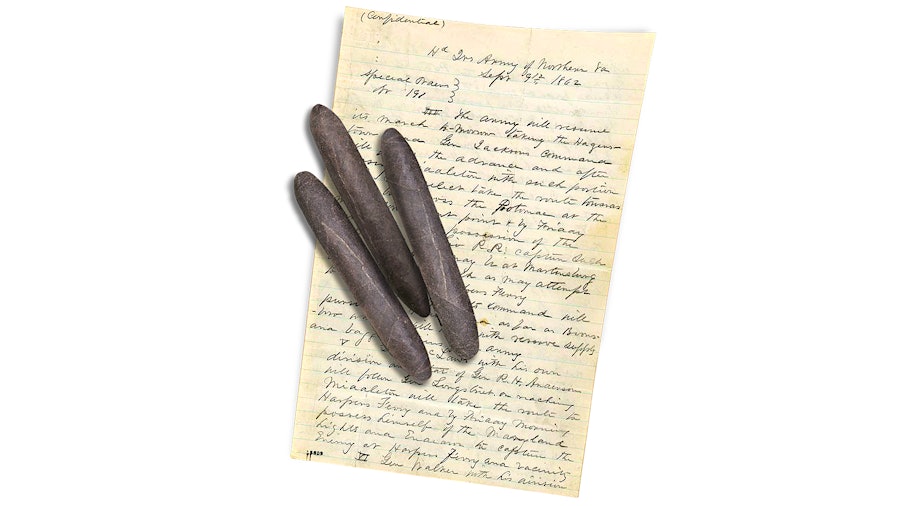 (Confidential)
Hd Qrs Army of Northern Va
Sept 9th 1862
Special Orders }
No 191 }
III The army will resume
its march to-morrow taking the Hagers-
town Gen Jackson's command
will the advance and after
Middleton with such portion
select take the route towards
the Potomac at the
point & by Friday
possession of the
R.R. capture such
may be at Martinsburg
as may attempt
Ferry
command will
as far as Boons-
-boro with reserve supply
and army
V with his own
division and that of Gen R. H. Anderson
will follow Gen Longstreet on reaching
Middleton will take the route to
Harpers Ferry and by Friday Morning
possess himself of the Maryland
hights and Endeavor to capture the
Enemy at Harpers Ferry and vacinity
VI Gen Walker with his division